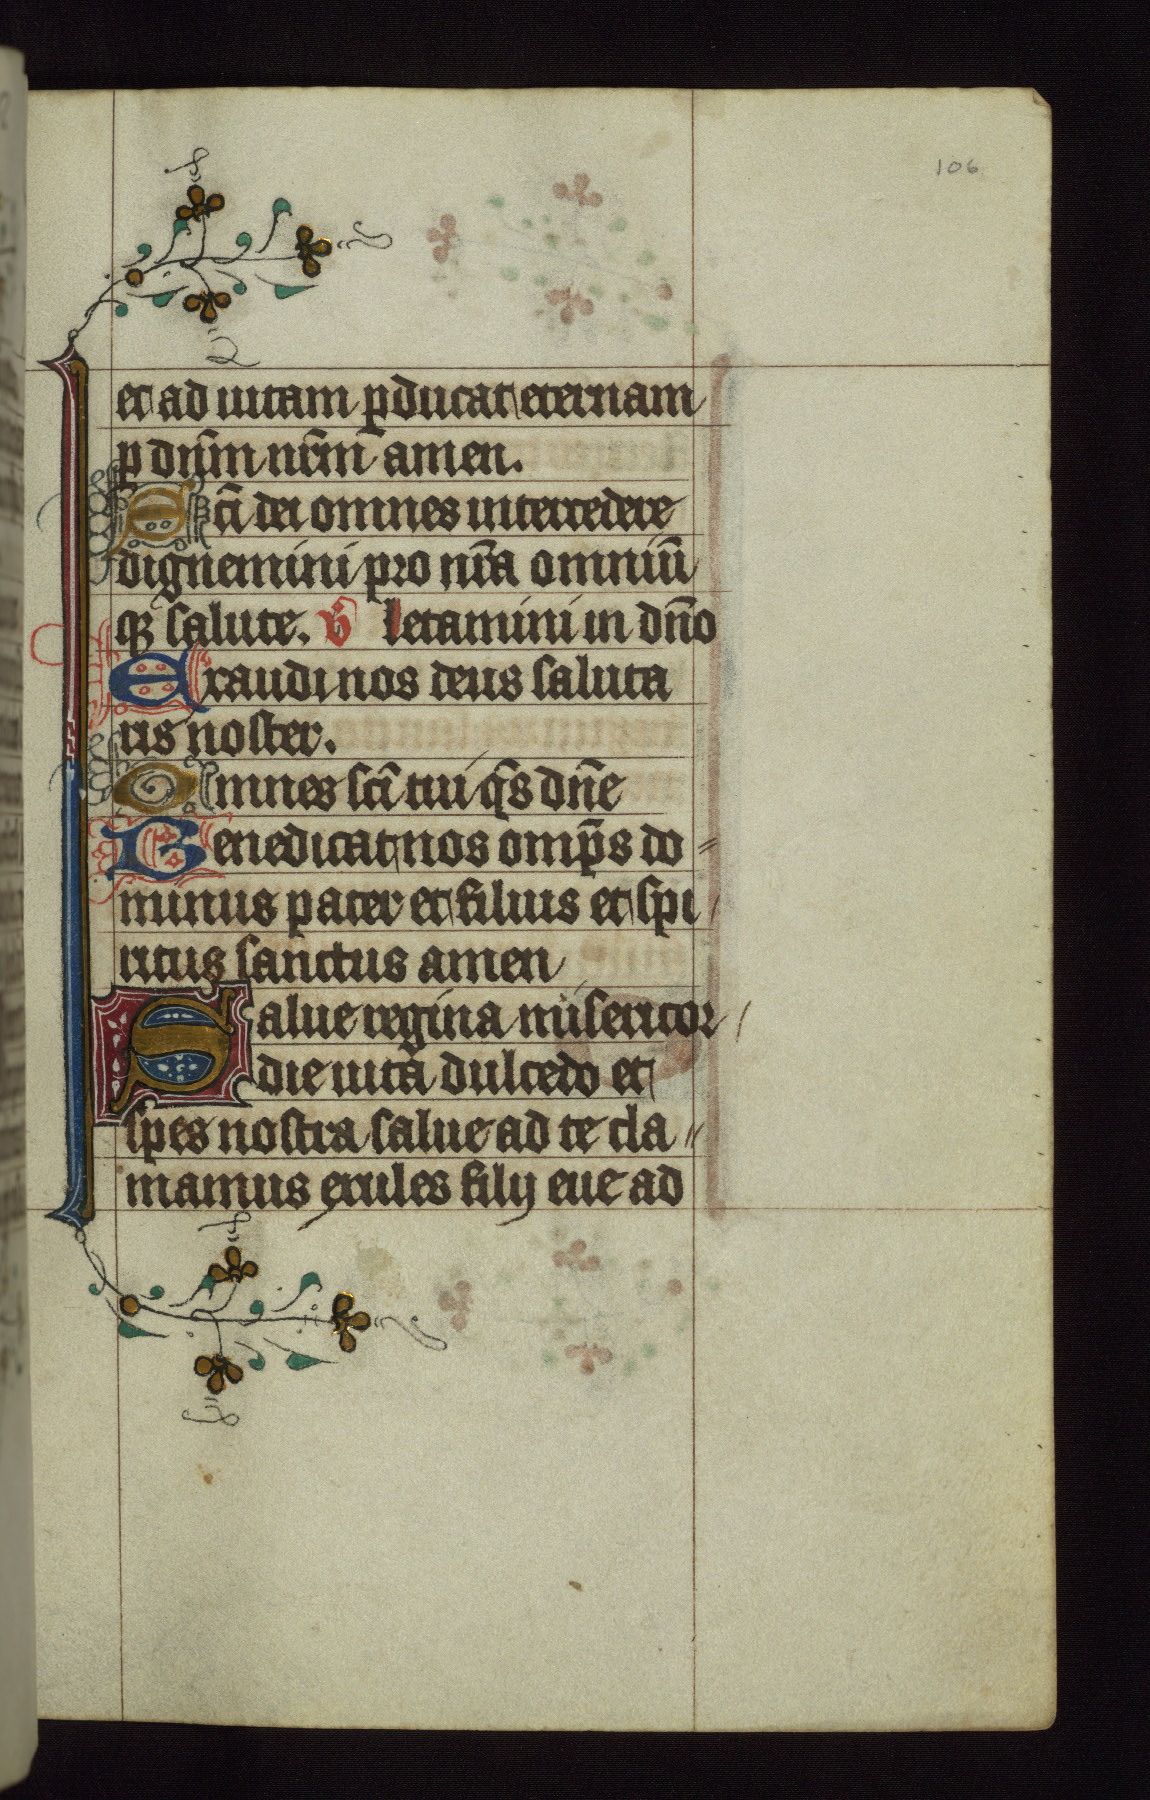 106
et ad uitam ꝑducat eternam
ꝑ dnm̄ nrm̄ amen.
Sc̄i dei omnes intercedere
dignemini pro nr̄a omniū
qꝫ salute. ℣ letamini in dn̄o
Exaudi nos deus saluta
ris noster.
Omnes sc̄i tui q̄s dn̄e
Benedicat nos omp̄s do⸗
minus pater et filius et spi
ritus sanctus amen
Salue regina misericor
die uita dulcedo et
spes nostra salue ad te cla⸗
mamus exules filij eue ad